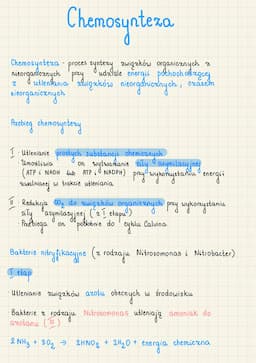 Chemosynteza
Chemosynteza - proces syntezy związków organicznych z
nieorganicznych przy udziale energii pochodzącej
z utleniania związków nieorganicznych, czasem
nieorganicznych
Przebieg chemosyntezy
I Utlenianie prostych substancji chemicznych
Umożliwia on wytwarzanie siły asymilacyjnej
(ATP i NADH lub ATP i NADPH) przy wykorzystaniu energii
zwolnionej w trakcie utleniania
II Redukcja CO2 do związków organicznych przy wykorzystaniu
siły asymilacyjnej (z I etapu)
Przebiega on podobnie do cyklu Calvina
Bakterie nitryfikacyjne (z rodzaju Nitrosomonas i Nitrobacter)
I etap
Utlenianie związków azotu obecnych w środowisku
Bakterie z rodzaju Nitrosomonas utleniają amoniak do
azotanu (III)
2NH3 + 3O2 → 2HNO2 + 2H2O + energia chemiczna